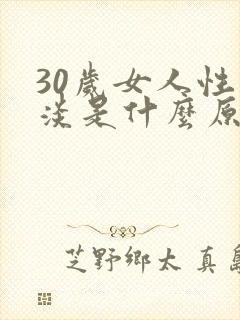 30歲女人性
淡是什麼原
芝野鄉太真